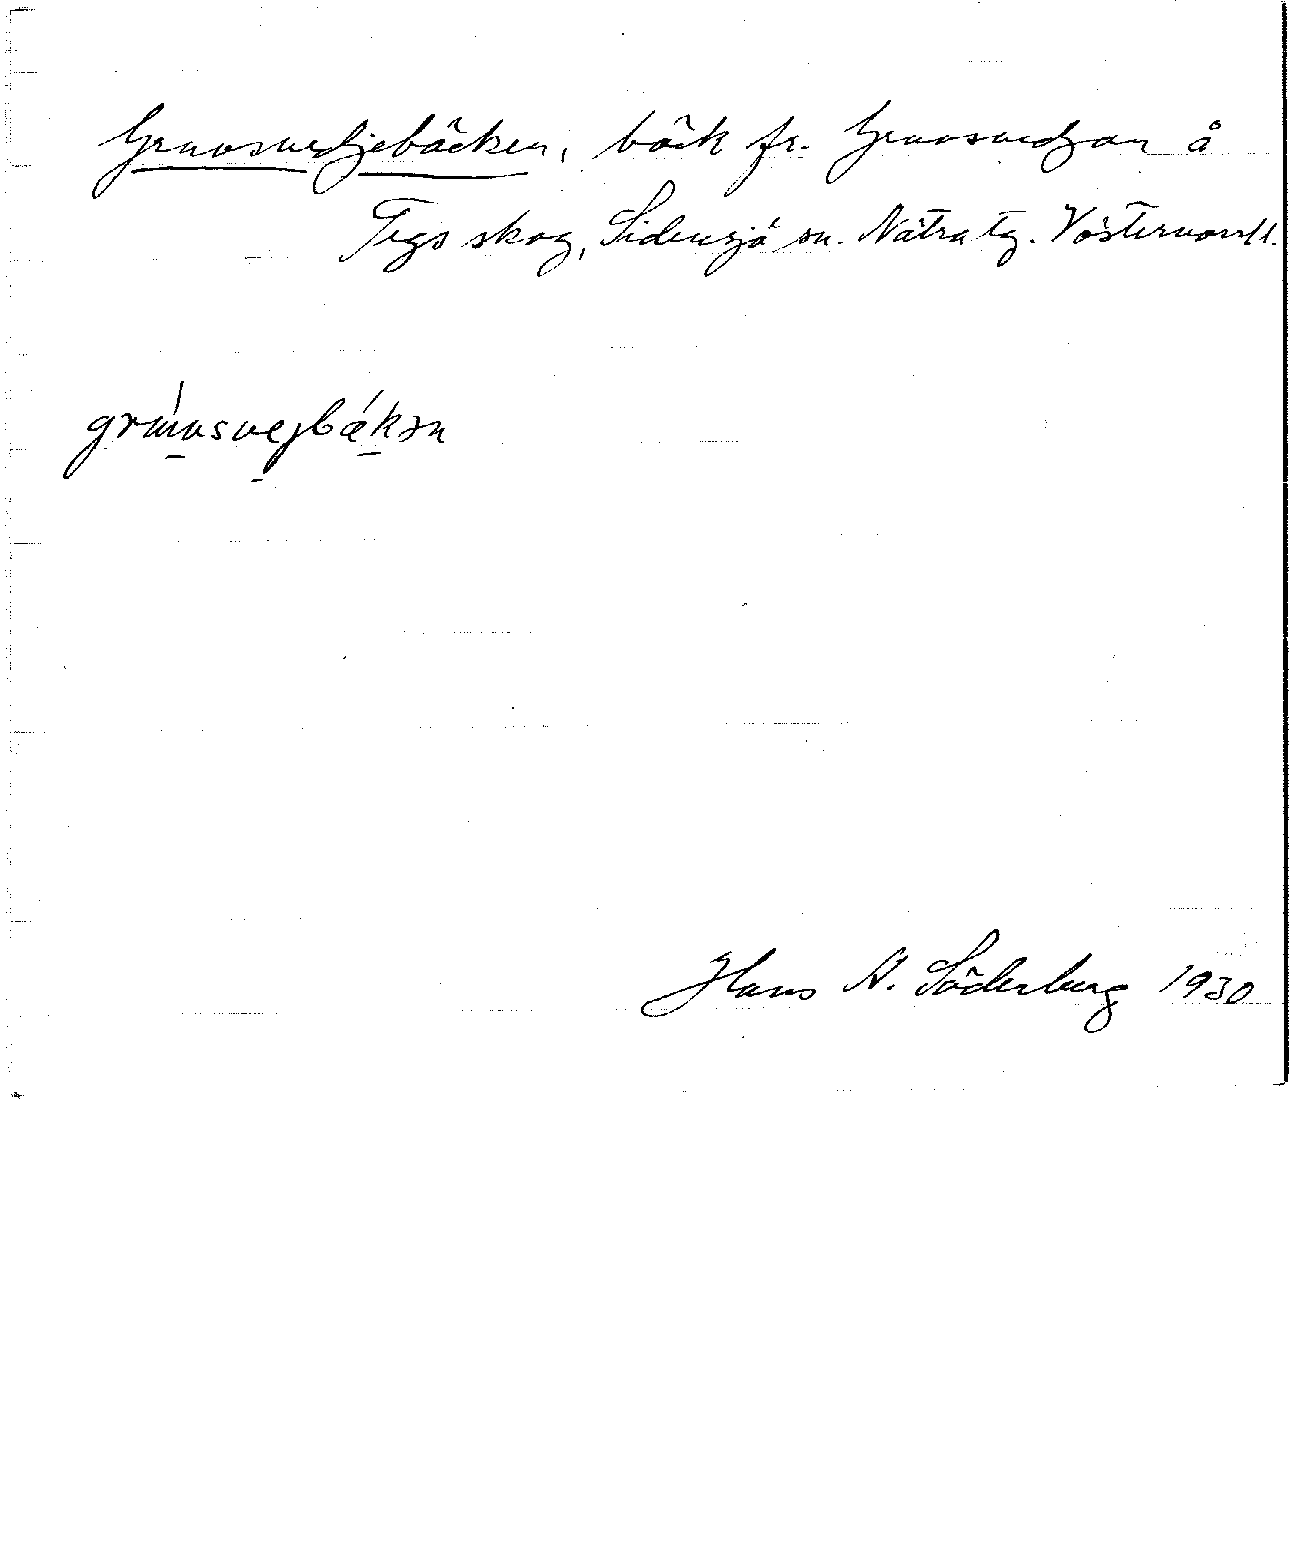 Gravsvedjebäcken, bäck fr. Gravsvedjan å
Tegs skog, Sidensjö sn. Nätra tg. Västernorrl.
Hans A. Söderberg 1930